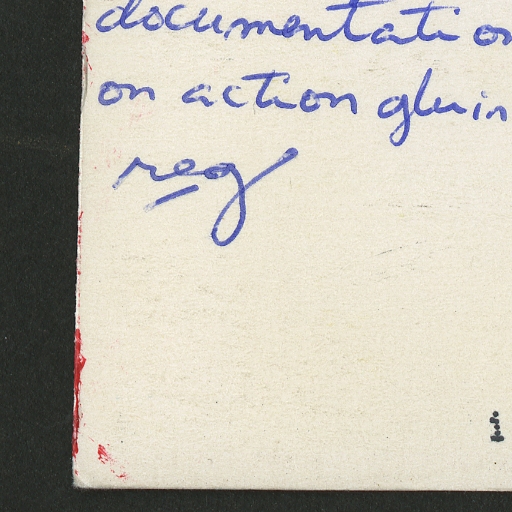 documentation
on action gluin
reg